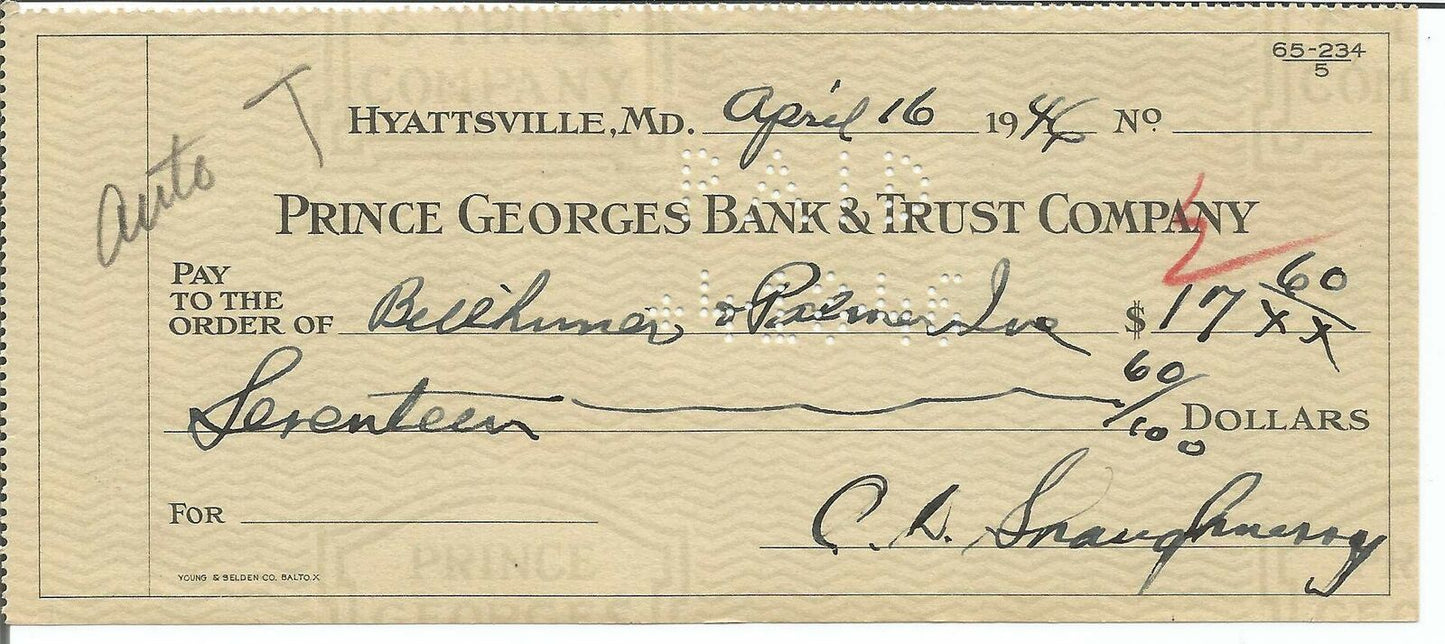 65-234
5
Auto T
HYATTSVILLE, MD. April 16 1946 Nº
PAID
PRINCE GEORGES BANK & TRUST COMPANY
PAY
TO THE
ORDER OF & Palmer Inc $ 17 60/xx
Seventeen 60/100 DOLLARS
FOR
C. D. Shaughnessy
YOUNG & SELDEN CO. BALTO. X
TRUST
COMPANY
PRINCE
GEORGES